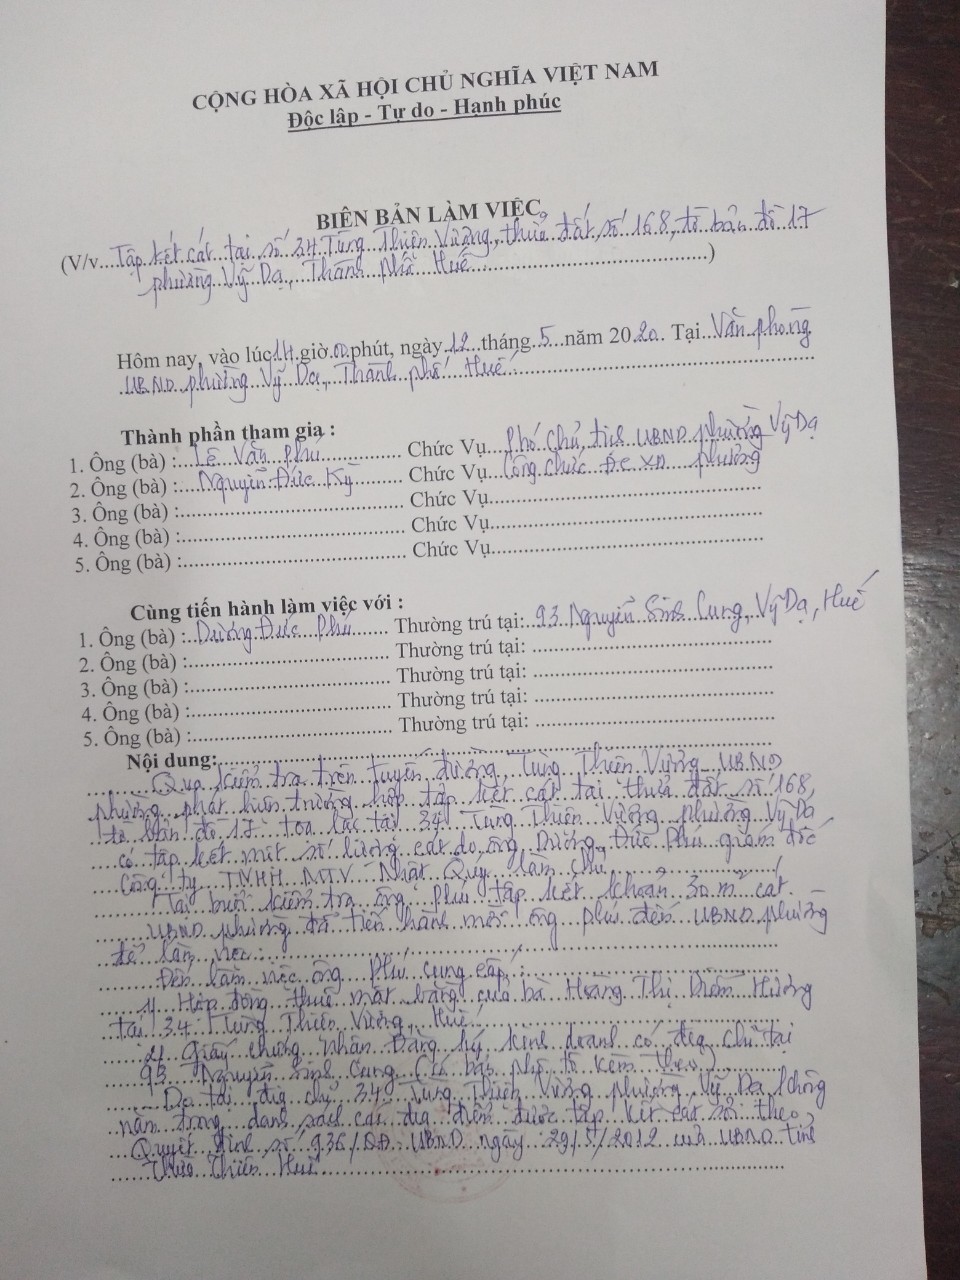 CỘNG HÒA XÃ HỘI CHỦ NGHĨA VIỆT NAM
Độc lập - Tự do - Hạnh phúc
BIÊN BẢN LÀM VIỆC
(V/v....Tập kết cát tại số 34 Tùng Thiện Vương, thửa đất số 168, tờ bản đồ 17
phường Vỹ Dạ, Thành phố Huế..............................)
Hôm nay, vào lúc 14 giờ 00 phút, ngày 12 tháng 5 năm 2020. Tại Văn phòng
UBND phường Vỹ Dạ, Thành phố Huế.
Thành phần tham gia :
1. Ông (bà) : Lê Văn Phú Chức Vụ Phó Chủ tịch UBND phường Vỹ Dạ
2. Ông (bà) : Nguyễn Đức Kỳ Chức Vụ Công chức ĐC XD phường
3. Ông (bà) : Chức Vụ
4. Ông (bà) : Chức Vụ
5. Ông (bà) : Chức Vụ
Cùng tiến hành làm việc với :
1. Ông (bà) : Dương Đức Phú Thường trú tại: 93 Nguyễn Sinh Cung, Vỹ Dạ, Huế
2. Ông (bà) : Thường trú tại:
3. Ông (bà) : Thường trú tại:
4. Ông (bà) : Thường trú tại:
5. Ông (bà) : Thường trú tại:
Nội dung:
Qua kiểm tra trên tuyến đường Tùng Thiện Vương UBND
phường phát hiện trường hợp tập kết cát tại thửa đất số 168,
tờ bản đồ 17 tọa lạc tại 34 Tùng Thiện Vương phường Vỹ Dạ
có tập kết một số lượng cát do ông Dương Đức Phú giám đốc
Công ty TNHH MTV Nhật Quy làm chủ
Tại buổi kiểm tra ông Phú tập kết khoản 30 m³ cát.
UBND phường đã tiến hành mời ông Phú đến UBND phường
để làm việc.
Đến làm việc ông Phú cung cấp :
1/ Hợp đồng thuê mặt bằng của bà Hoàng Thị Diễm Hương
tại 34 Tùng Thiện Vương, Huế.
2/ Giấy chứng nhận Đăng ký kinh doanh có địa chỉ tại
93 Nguyễn Sinh Cung (Có bản phô tô kèm theo)
Do tại địa chỉ 34 Tùng Thiện Vương phường Vỹ Dạ không
nằm trong danh sách các địa điểm được tập kết cát sỏi theo
Quyết định số 936/QĐ UBND ngày 29/5/2012 của UBND tỉnh
Thừa Thiên Huế